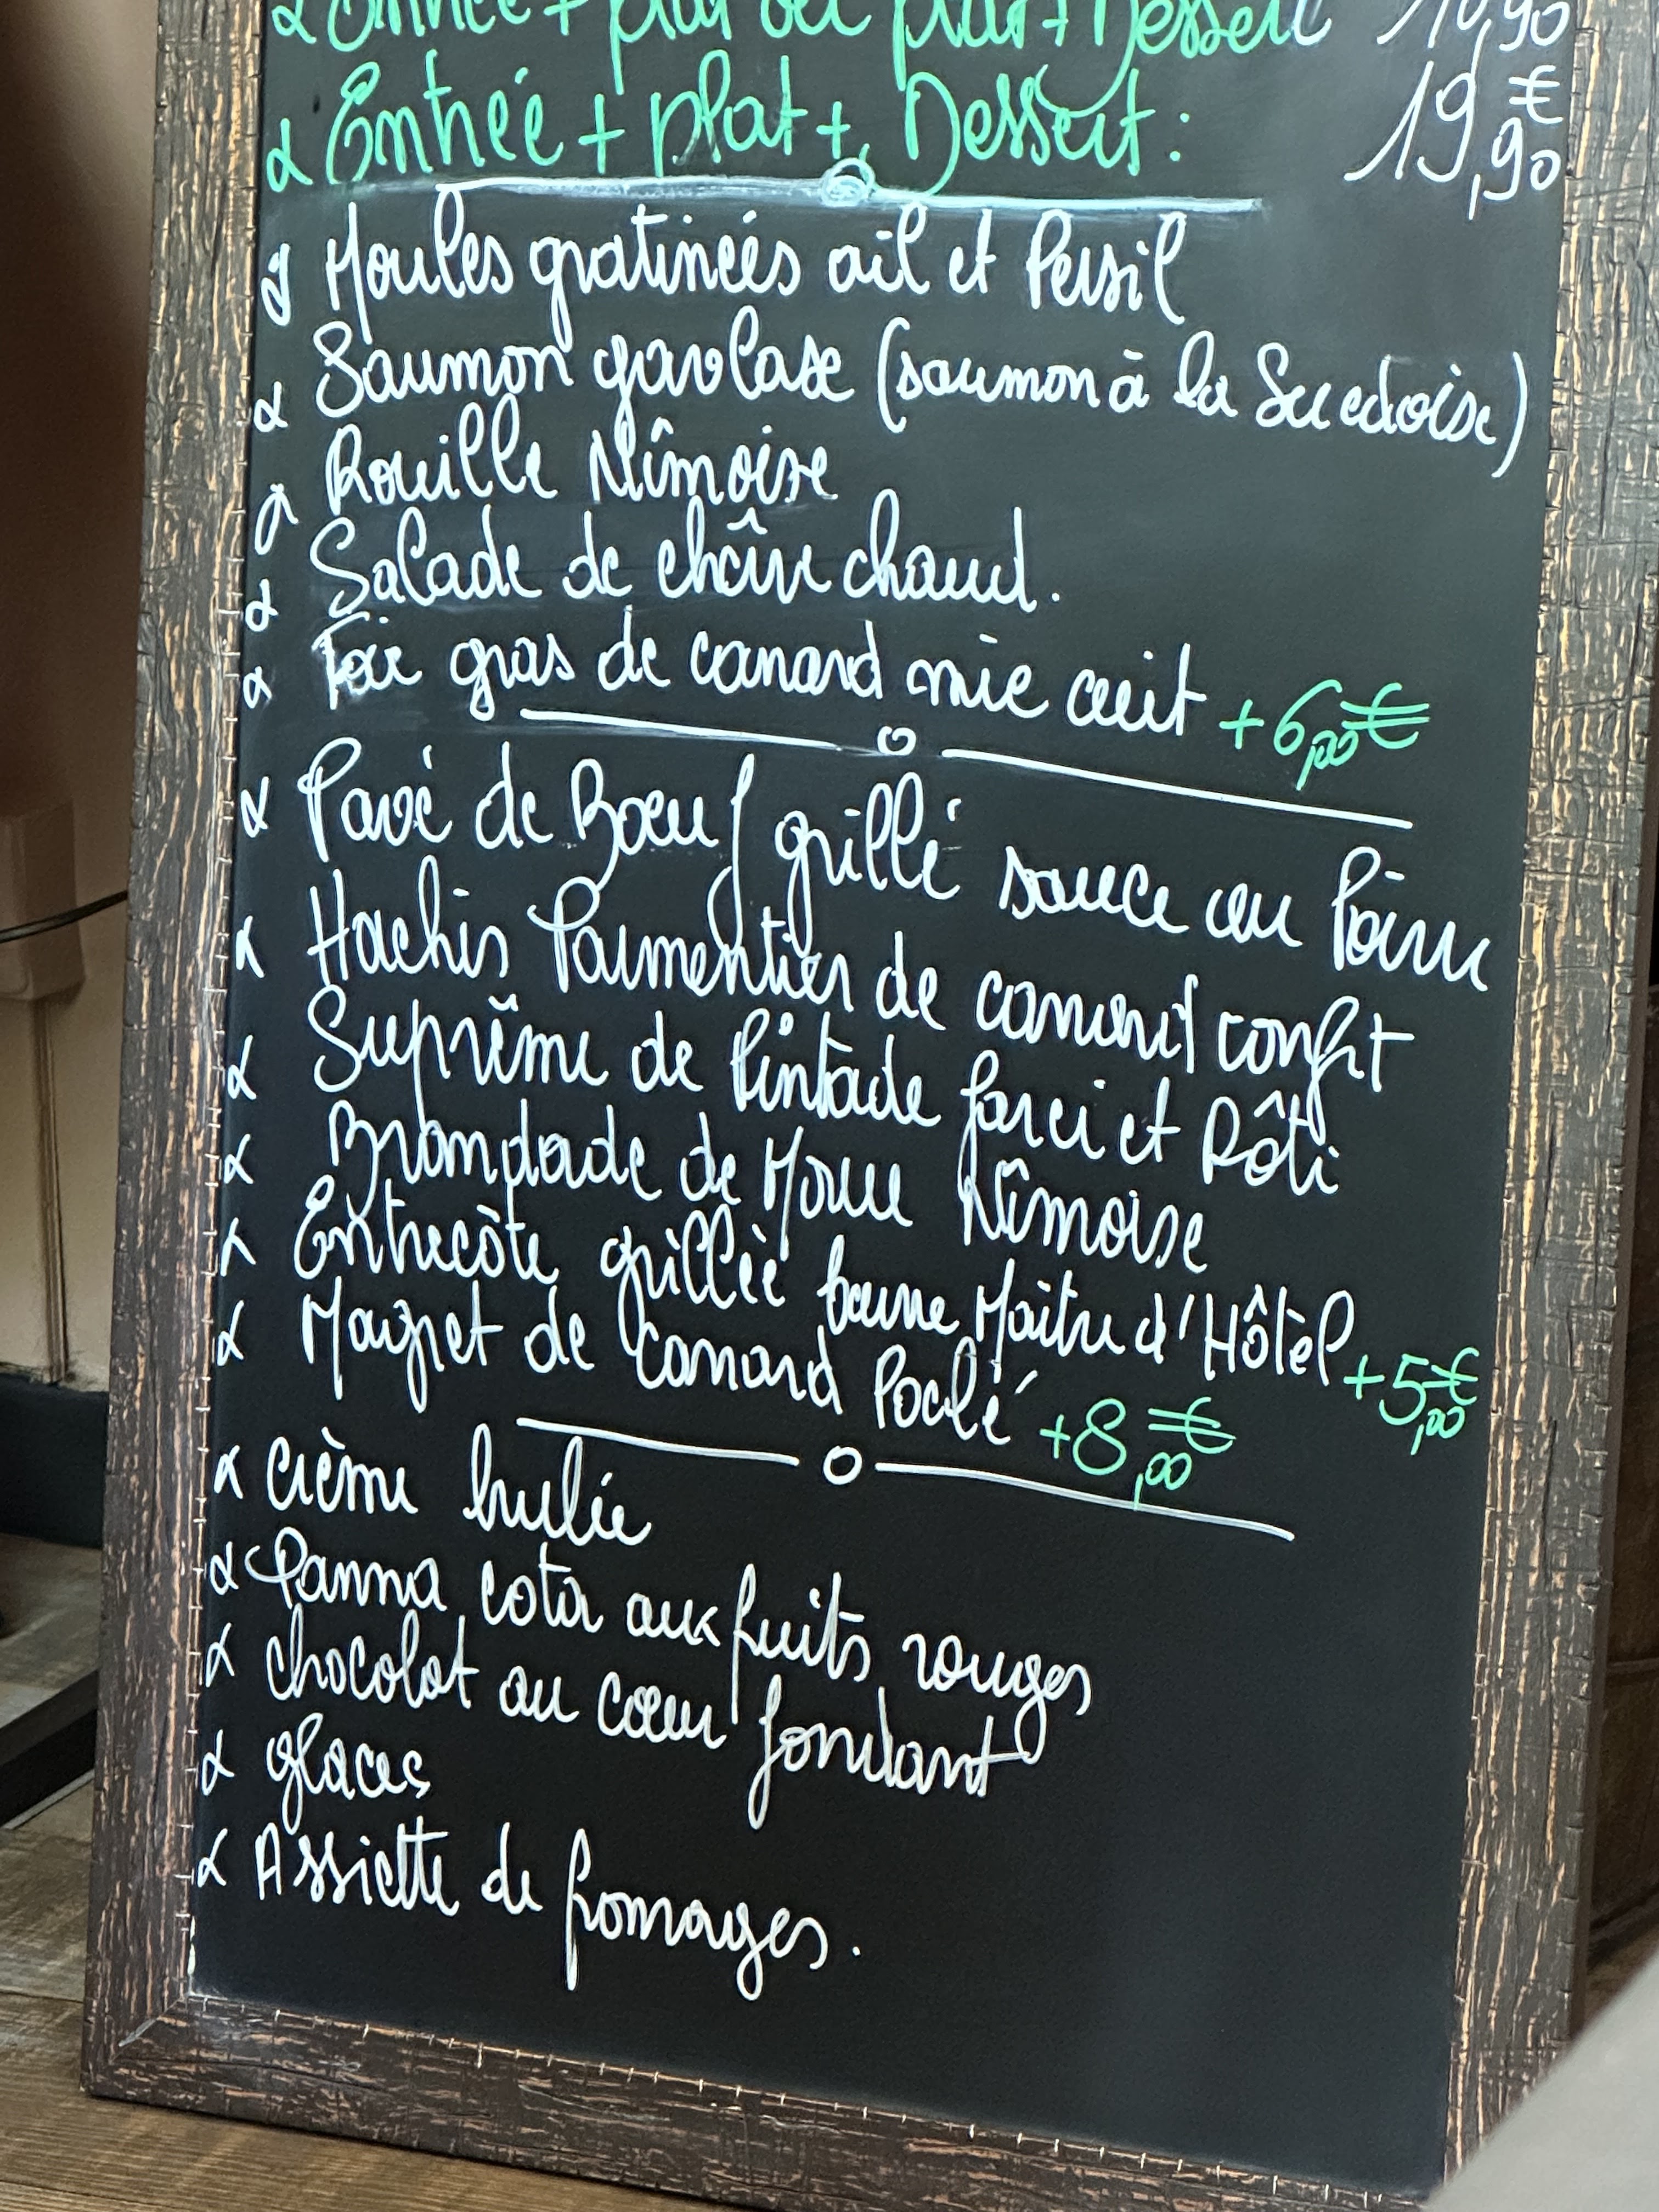 Entrée + plat ou plat + Dessert
Entrée + plat + Dessert : 19,90€
Moules gratinées ail et Persil
Saumon gravlaxe (saumon à la Suedoise)
Rouille Nîmoise
Salade de chèvre chaud.
Foie gras de canard mie cuit +6,00€
Pavé de Boeuf grillé sauce au Poivre
Hachis Parmentier de canard confit
Suprême de Pintade farci et Rôti
Brandade de Morue Nîmoise
Entrecôte grillée beurre Maitre d'Hôtel +5,00€
Magret de Canard Poêlé +8,00€
Crème brulée
Panna cota aux fruits rouges
chocolat au cœur fondant
glaces
Assiette de fromages.